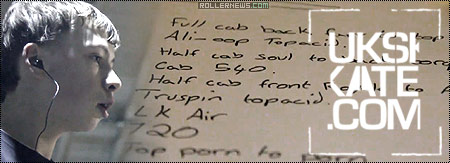 ROLLERNEWS.COM
Full cab back
top
Ali-oop Topacid.
Half cab soul to
Cab 540.
Half cab front
to
Truspin topacid.
LK Air
720
Top porn to porn
UKSK
KATE
.COM